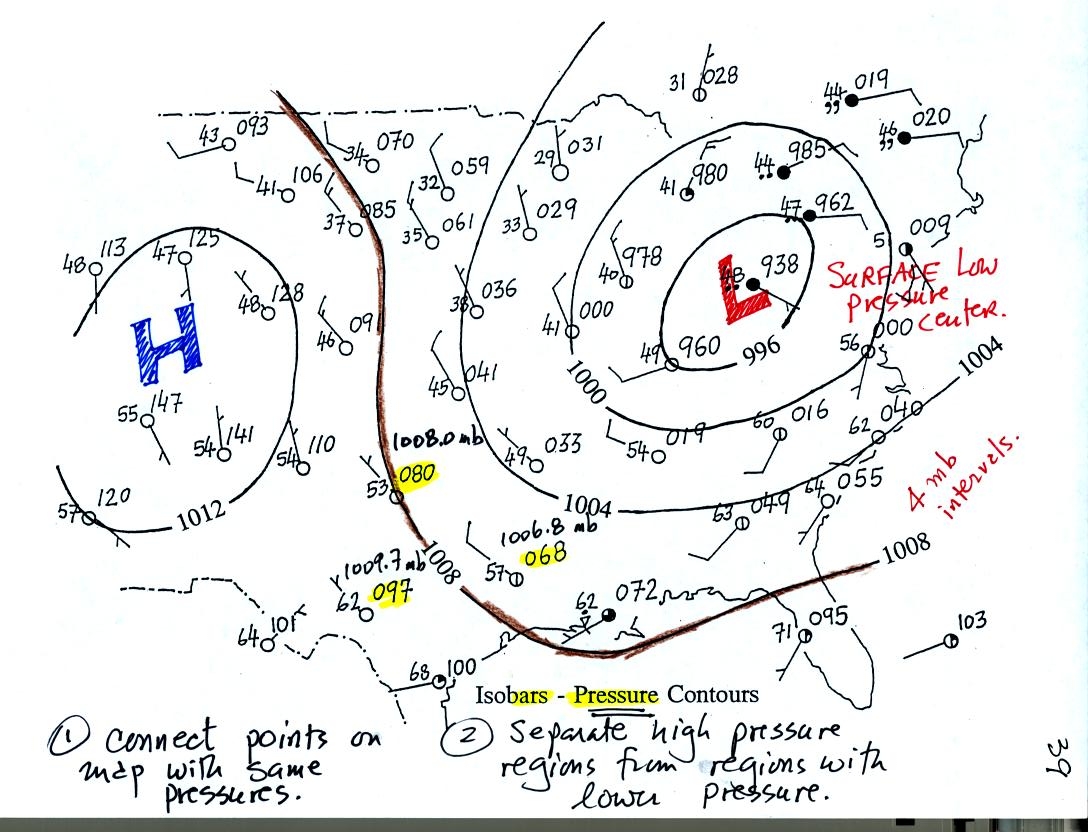 31 028
44 019
,,
46 020
,,
43 093
34 070
29 031
44 985
41 106
32 059
41 980
47 962
37 085
35 061
33 029
5 009
48 113
47 125
48 128
40 978
48 938
L
SURFACE Low
pressure
center.
H
46 09
38 036
41 000
56 000
49 960
996
1004
45 041
1000
55 147
54 141
54 110
49 033
54 019
60 016
62 040
1008.0 mb
53 080
57 120
1012
1004
63 049
64 055
4 mb
intervals.
1006.8 mb
57 068
1008
1009.7 mb
62 097
1008
62 072
64 101
71 095
103
68 100
Isobars - Pressure Contours
1 connect points on
map with same
pressures.
2 Separate high pressure
regions from regions with
lower pressure.
39